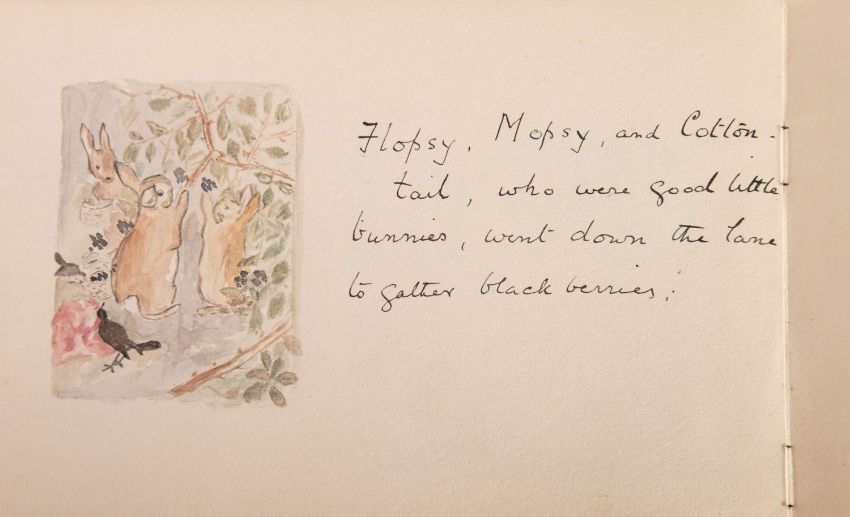 Flopsy, Mopsy, and Cotton-
tail, who were good little
bunnies, went down the lane
to gather black berries;